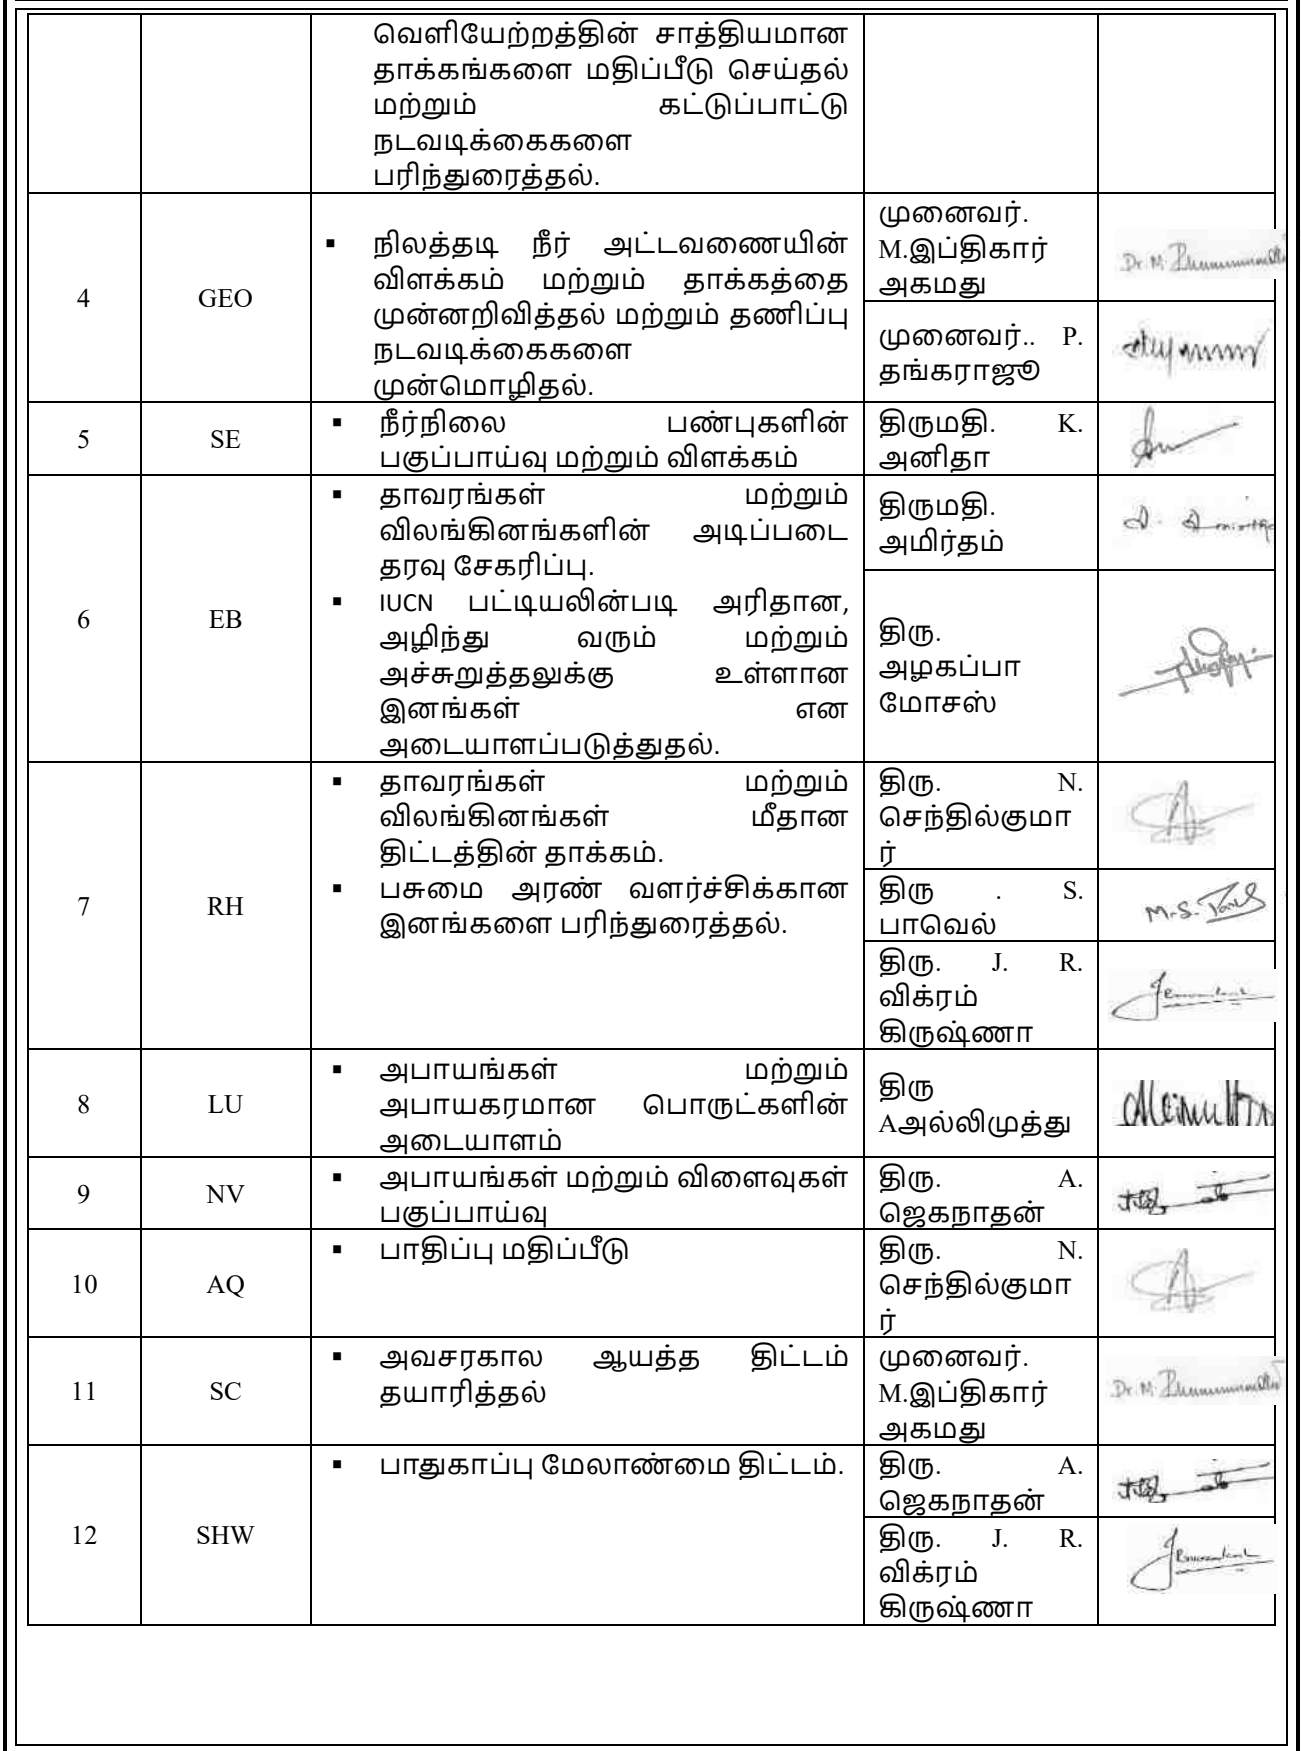 வெளியேற்றத்தின் சாத்தியமான
தாக்கங்களை மதிப்பீடு செய்தல்
மற்றும் கட்டுப்பாட்டு
நடவடிக்கைகளை
பரிந்துரைத்தல்.
4 GEO
▪ நிலத்தடி நீர் அட்டவணையின்
விளக்கம் மற்றும் தாக்கத்தை
முன்னறிவித்தல் மற்றும் தணிப்பு
நடவடிக்கைகளை
முன்மொழிதல்.
முனைவர்.
M.இப்திகார்
அகமது
Dr. M.
முனைவர்.. P.
தங்கராஜூ
5 SE
▪ நீர்நிலை பண்புகளின்
பகுப்பாய்வு மற்றும் விளக்கம்
திருமதி. K.
அனிதா
6 EB
▪ தாவரங்கள் மற்றும்
விலங்கினங்களின் அடிப்படை
தரவு சேகரிப்பு.
▪ IUCN பட்டியலின்படி அரிதான,
அழிந்து வரும் மற்றும்
அச்சுறுத்தலுக்கு உள்ளான
இனங்கள் என
அடையாளப்படுத்துதல்.
திருமதி.
அமிர்தம்
திரு.
அழகப்பா
மோசஸ்
7 RH
▪ தாவரங்கள் மற்றும்
விலங்கினங்கள் மீதான
திட்டத்தின் தாக்கம்.
▪ பசுமை அரண் வளர்ச்சிக்கான
இனங்களை பரிந்துரைத்தல்.
திரு. N.
செந்தில்குமா
ர்
திரு . S.
பாவெல்
M.S.
திரு. J. R.
விக்ரம்
கிருஷ்ணா
8 LU
▪ அபாயங்கள் மற்றும்
அபாயகரமான பொருட்களின்
அடையாளம்
திரு
Aஅல்லிமுத்து
9 NV
▪ அபாயங்கள் மற்றும் விளைவுகள்
பகுப்பாய்வு
திரு. A.
ஜெகநாதன்
10 AQ
▪ பாதிப்பு மதிப்பீடு
திரு. N.
செந்தில்குமா
ர்
11 SC
▪ அவசரகால ஆயத்த திட்டம்
தயாரித்தல்
முனைவர்.
M.இப்திகார்
அகமது
Dr. M.
12 SHW
▪ பாதுகாப்பு மேலாண்மை திட்டம்.
திரு. A.
ஜெகநாதன்
திரு. J. R.
விக்ரம்
கிருஷ்ணா